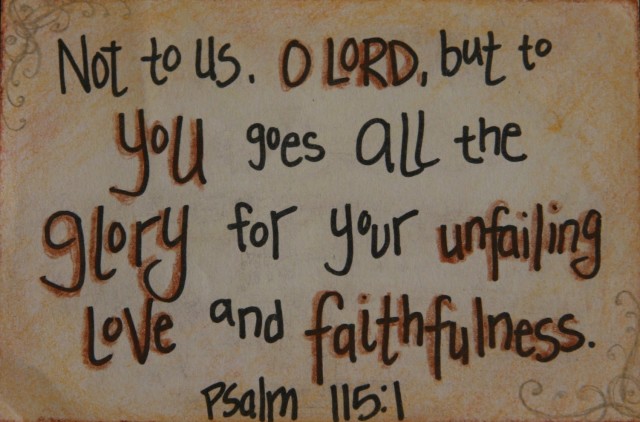 Not to us. O LORD, but to
you goes all the
glory for your unfailing
Love and faithfulness.
Psalm 115:1